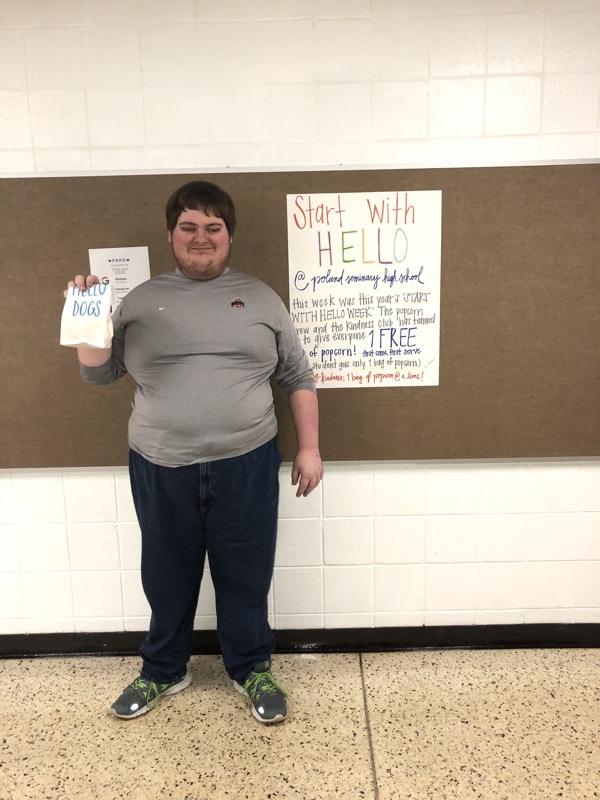 HELLO
DOGS
PSHS
Start With
HELLO
@ poland seminary high school
this week was this year's "START
WITH HELLO WEEK" The popcorn
crew and the kindness club has teamed
to give everyone 1 FREE
of popcorn! first come, first serve
student gets only 1 bag of popcorn)
kindness, 1 bag of popcorn @ a time!